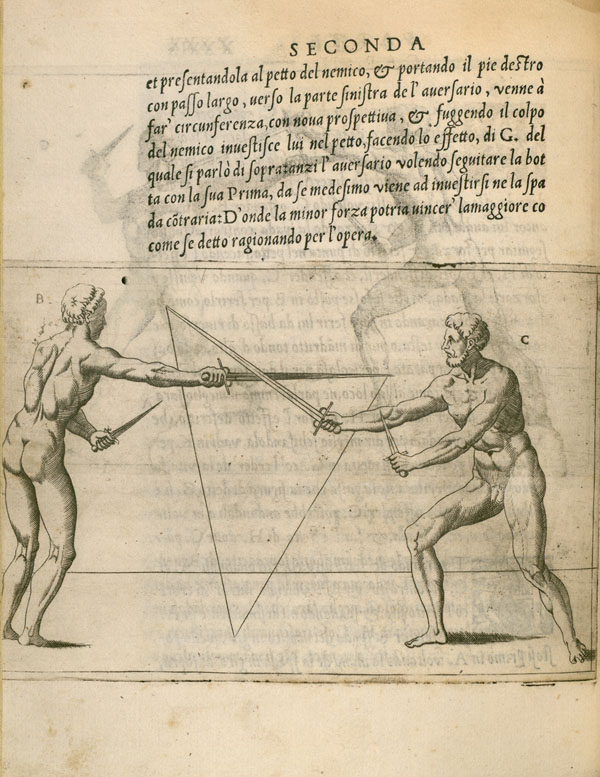 SECONDA
et presentandola al petto del nemico, & portando il pie destro
con passo largo, uerso la parte sinistra de l' auersario, venne à
far' circunferenza, con noua prospettiua, &. fuggendo il colpo
del nemico inuestisce lui nel petto, facendo lo effetto, di G. del
quale si parlò di sopra: anzi l' auersario volendo seguitare la bot
ta con la sua Prima, da se medesimo viene ad inuestirsi ne la spa
da cõtraria: D'onde la minor forza potria uincer' lamaggiore co
come se detto ragionando per l'opera.
B
C